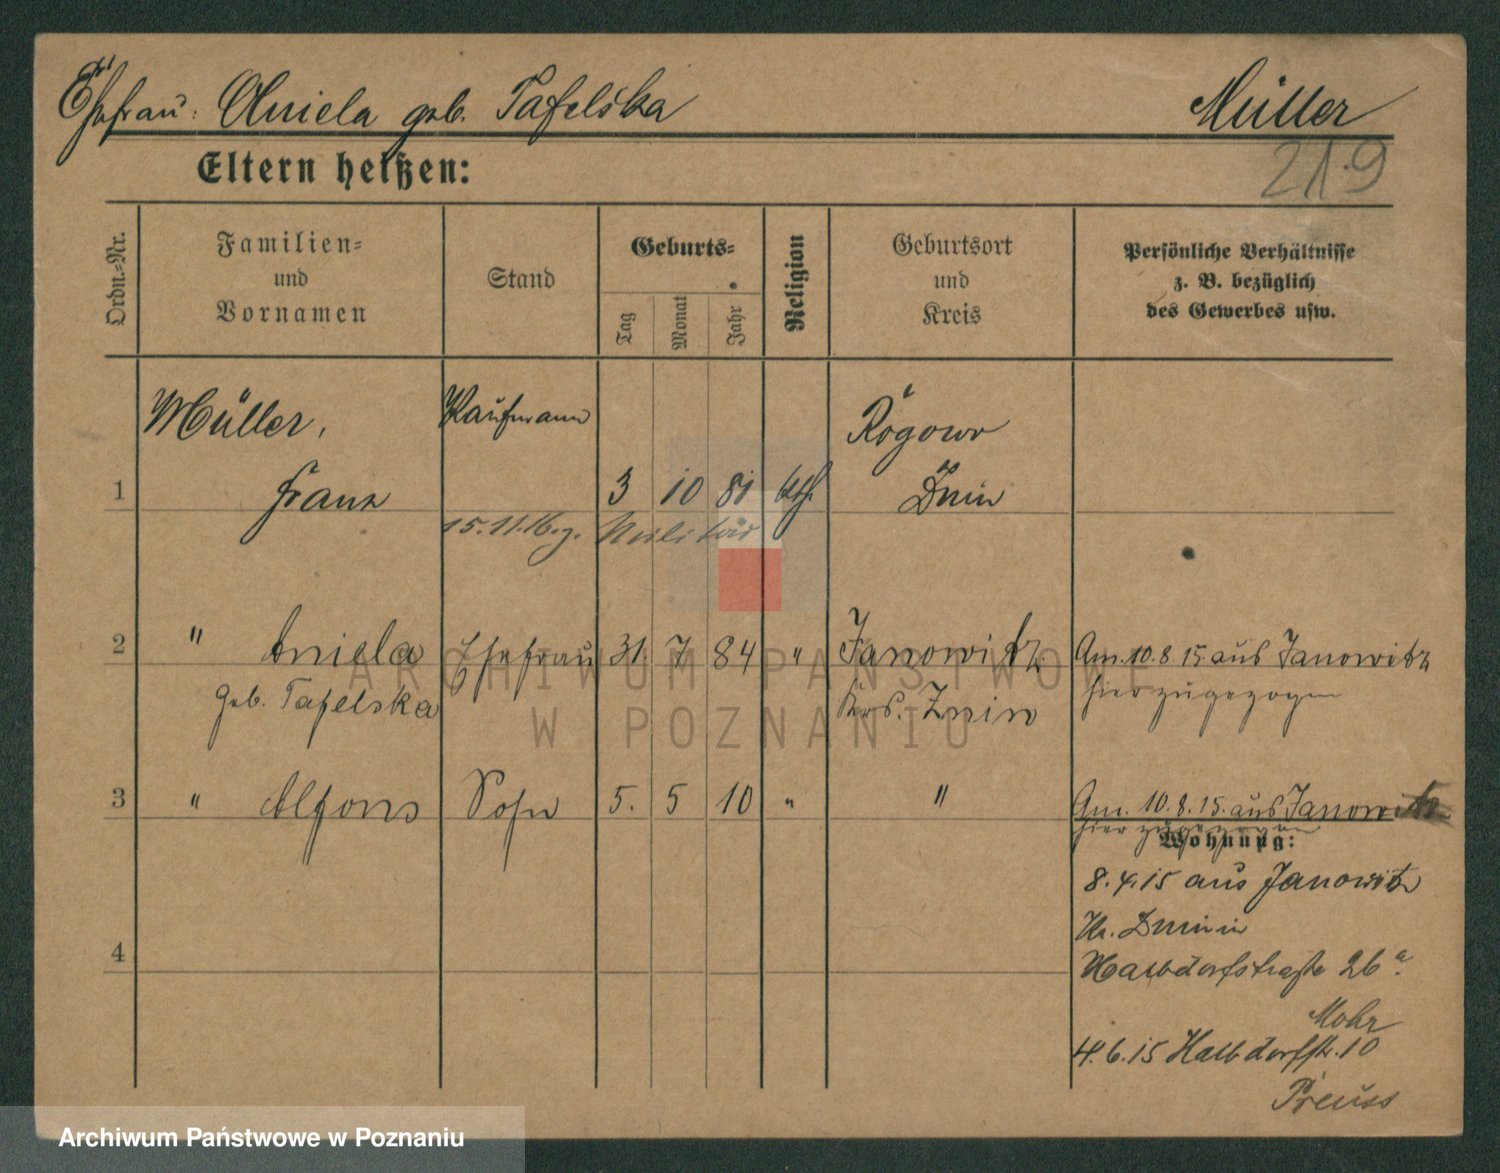 Ehefrau: Aniela geb. Tafelska
Müller
Eltern heißen:
21.9
Ordn.-Nr.
Familien-
und
Vornamen
Stand
Geburts-
Tag
Monat
Jahr
Religion
Geburtsort
und
Kreis
Persönliche Verhältnisse
z. B. bezüglich
des Gewerbes usw.
Müller, Kaufmann Rogowo
1 Franz 3 10 81 kth. Znin
15.11.16. z. Militär
2 " Aniela Ehefrau 31 7 84 " Janowitz Am. 10.8.15. aus Janowitz
geb. Tafelska Krs. Znin hier zugezogen
3 " Alfons Sohn 5. 5 10 " " Am. 10.8.15. aus Janowitz
hier zugezogen
Wohnung:
8.4.15 aus Janowitz
Kr.
4
Halbdorfstraße 26a.
Mohr
4.6.15 Halbdorfstr. 10
Preuss
ARCHIWUM PAŃSTWOWE
W POZNANIU
Archiwum Państwowe w Poznaniu